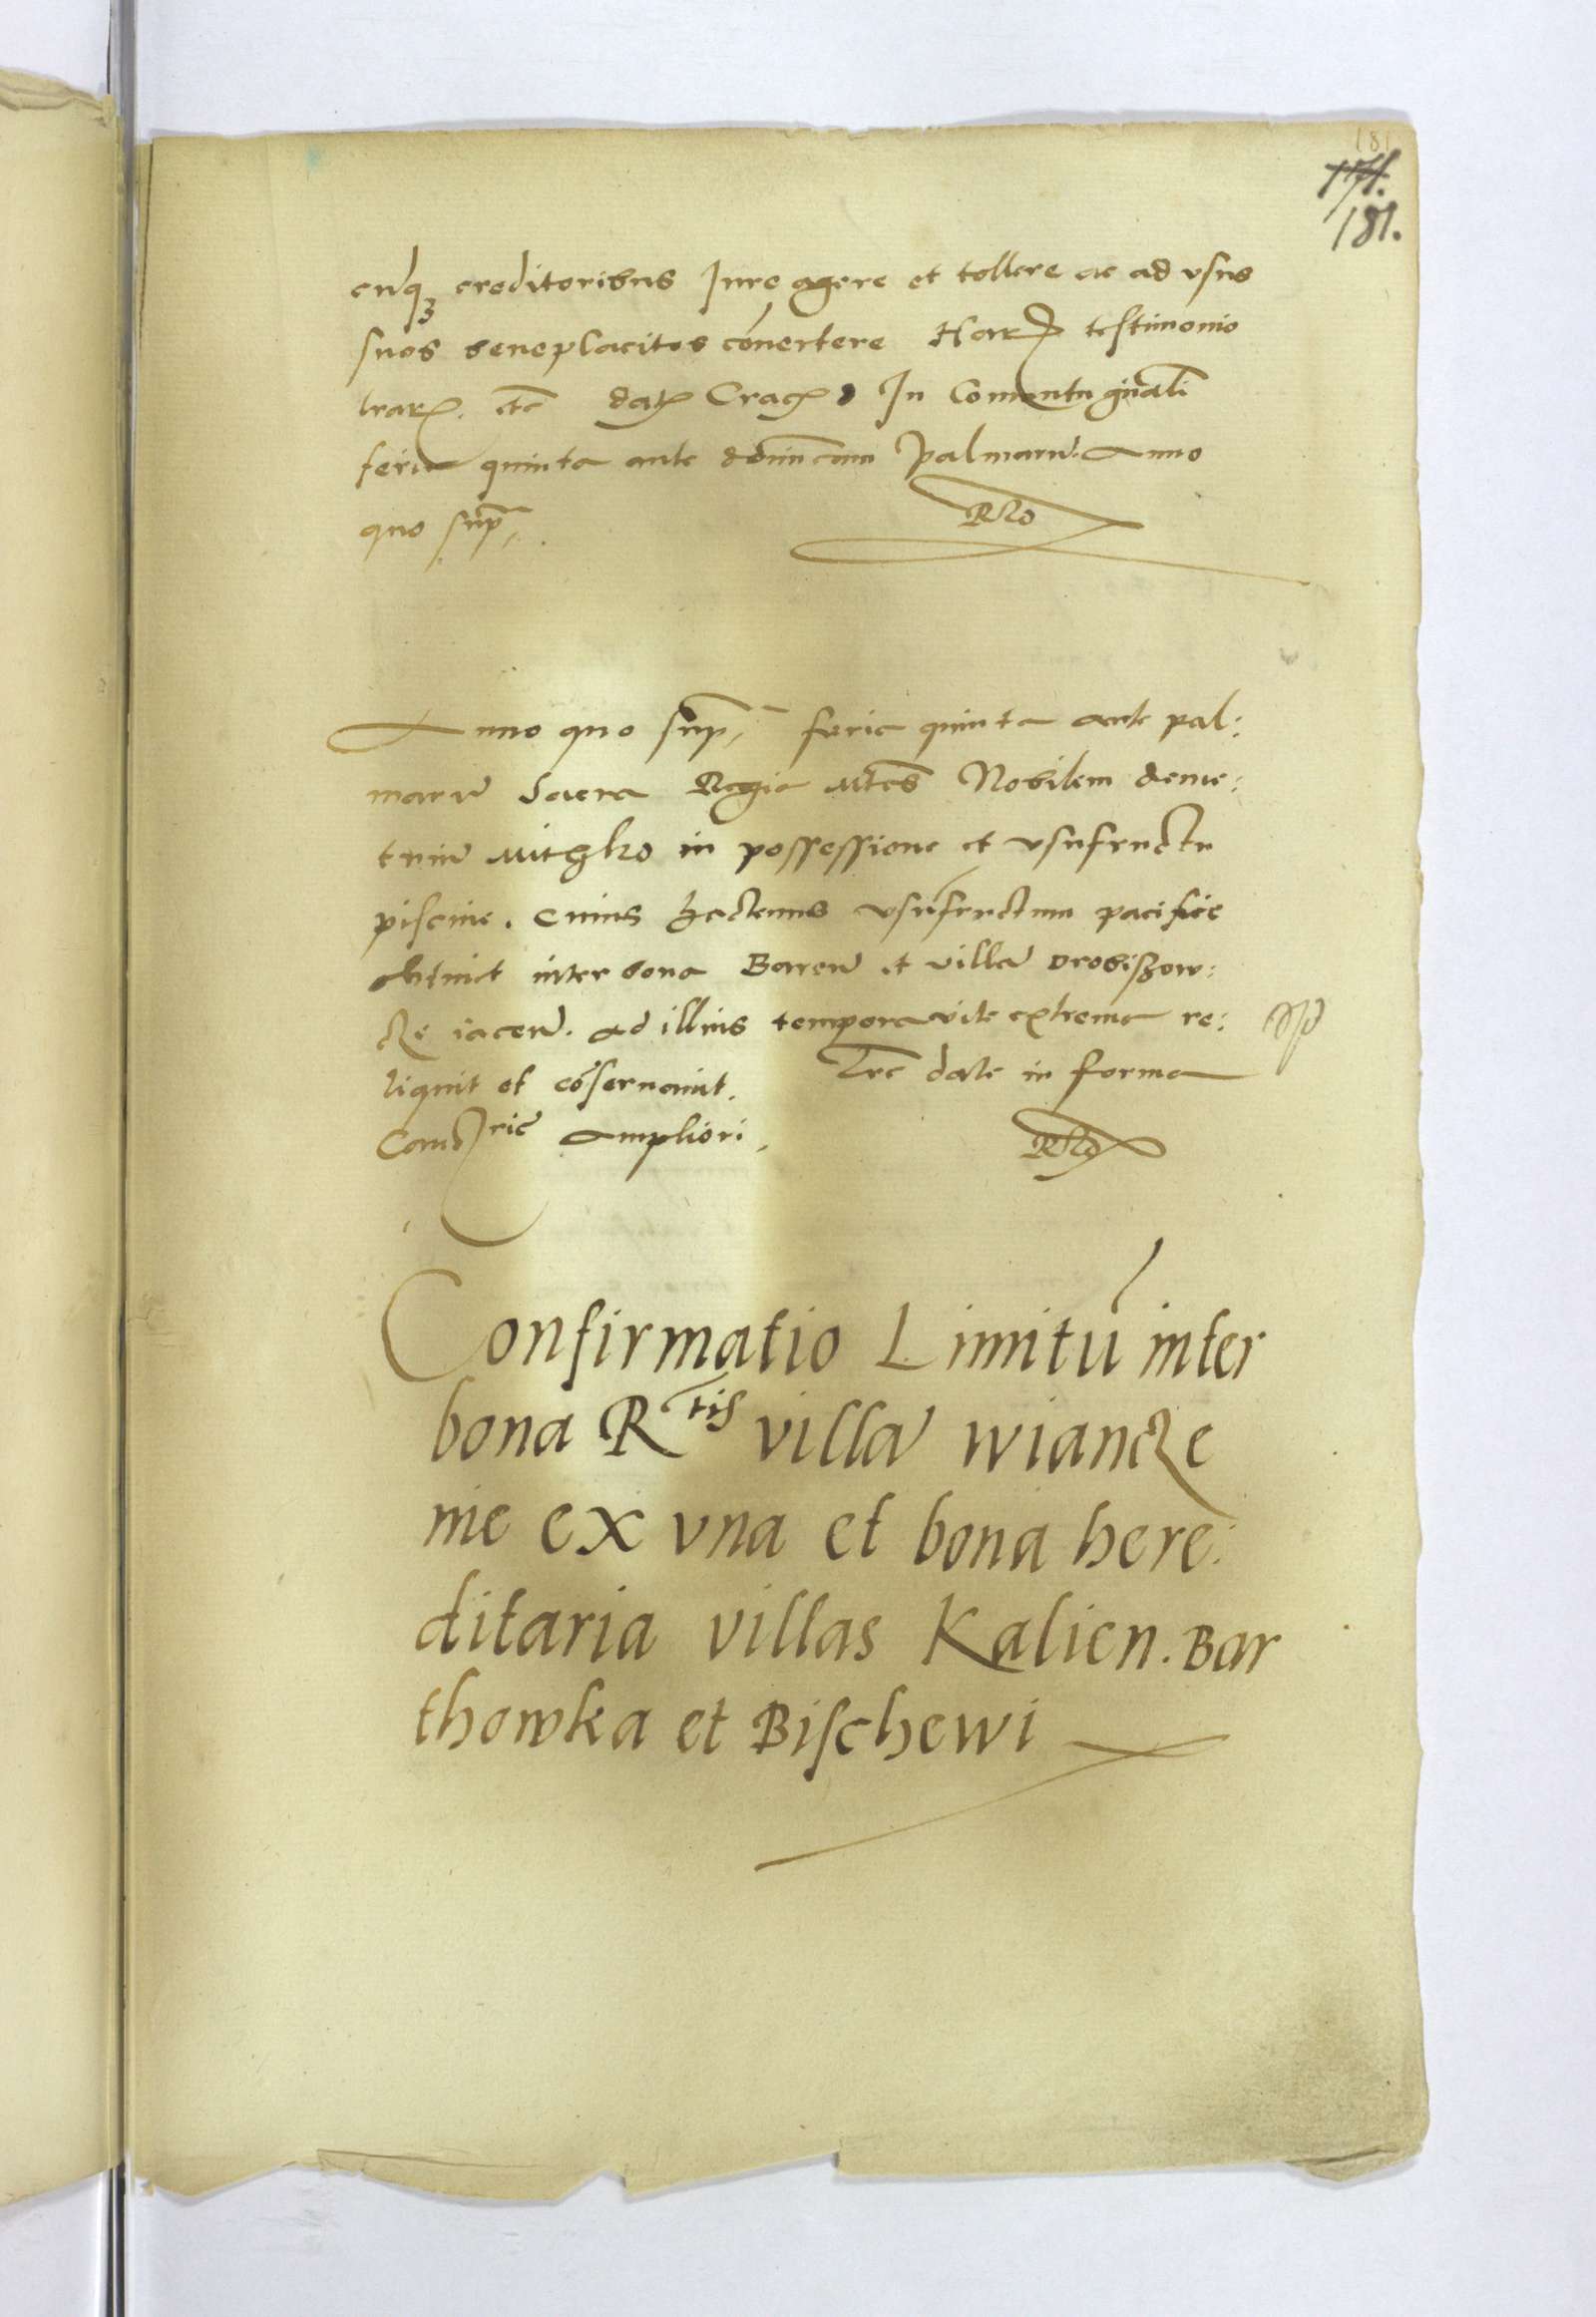 181
171.
181.
cuiq₃ creditoribus Jure agere et tollere ac ad vsus
suos beneplacitos cōnertere Harꝝ testimonio
lrarꝝ. etc̄ datꝫ Cracꝫ In Conuentu gn̄ali
feria quinta ante dominicam Palmarū. Anno
quo sup̄,
Anno quo sup̄, feria quinta ante pal:
marū Sacra Regia Mtas Nobilem deme:
trium Mithko in possessione et vsufructu
piscine. Cuius hactenus vsūfructum pacifice
obtinet inter bona Baren̄ et villā Drobiszow:
cze iacen̄. ad illius tempora vite extrema re:
liquit et cōseruauit. Lrē date in forma
Canc̄rie ampliori,
Confirmatio Limitū inter
bona R tis villā wiancze
nie ex vna et bona here:
ditaria villas Kalien. Bar
thowka et Bischewi